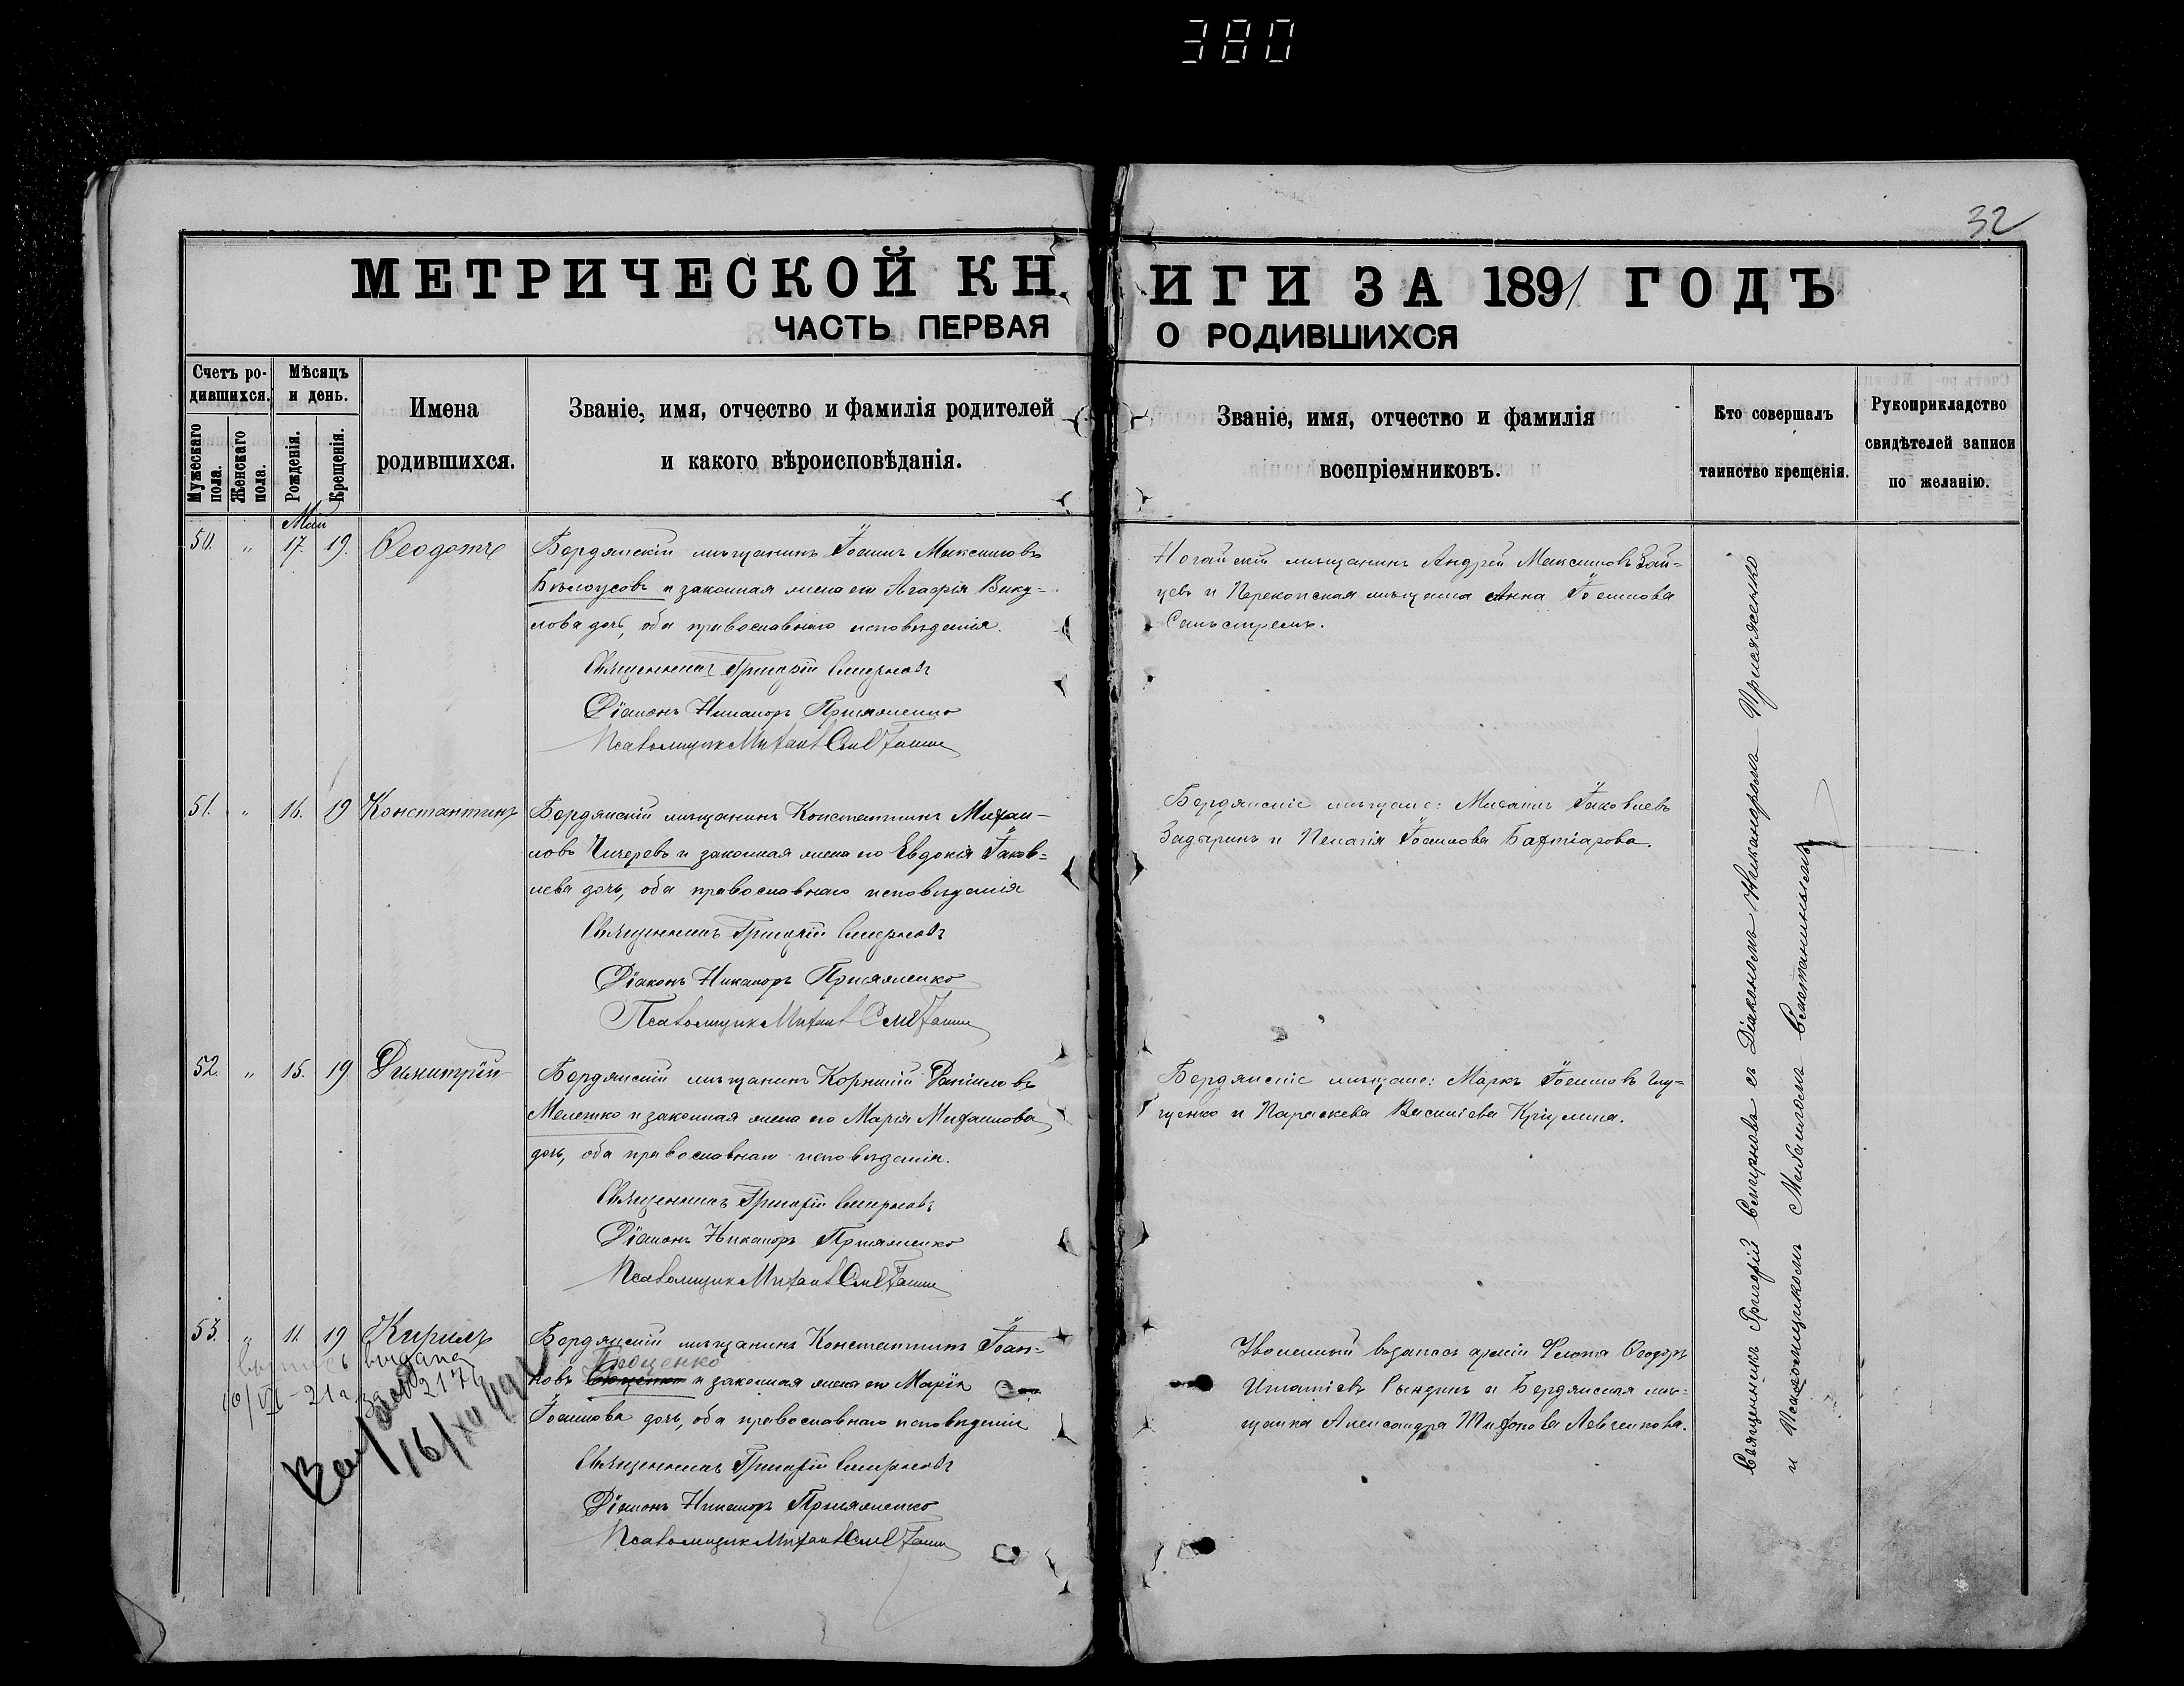 380
32
МЕТРИЧЕСКОЙ КНИГИ ЗА 1891 ГОДЪ
ЧАСТЬ ПЕРВАЯ О РОДИВШИХСЯ
Счетъ ро-
дившихся.
Мужескаго пола.
Женскаго пола.
Мѣсяцъ
и день.
Рожденія.
Крещенія.
Имена
родившихся.
Званіе, имя, отчество и фамилія родителей
и какого вѣроисповѣданія.
Званіе, имя, отчество и фамилія
воспріемниковъ.
Кто совершалъ
таинство крещенія.
Рукоприкладство
свидѣтелей записи
по желанію.
Май
50. " 17. 19. Ѳеодотъ
Бердянскій мѣщанинъ Іоаннъ Максимовъ
Бѣлоусовъ и законная жена его Агафія Вику-
лова дочь, оба православнаго исповѣданія.
Священникъ Григорій Смирновъ
Діаконъ Никаноръ Присяженко
Псаломщикъ Михаилъ
Ногайскій мѣщанинъ Андрей Максимовъ Зай-
цевъ и Перекопская мѣщанка Анна Іоаннова
51. " 16. 19 Константинъ
Бердянскій мѣщанинъ Константинъ Михаи-
ловъ Чичеревъ и законная жена его Евдокія Іаков-
лева дочь, оба православнаго исповѣданія
Священникъ Григорій Смирновъ
Діаконъ Никаноръ Присяженко
Псаломщикъ Михаилъ
Бердянскіе мѣщане: Михаилъ Іаковлевъ
и Пелагія Іоаннова Бахтіарова.
52. " 15. 19. Димитрій
Бердянскій мѣщанинъ Корнилій Даніиловъ
Мелешко и законная жена его Марія Михаилова
дочь, оба православнаго исповѣданія.
Священникъ Григорій Смирновъ
Діаконъ Никаноръ Присяженко
Псаломщикъ Михаилъ
Бердянскіе мѣщане: Маркъ Іоанновъ Глу-
щенко и Параскева Василіева
53. " 11. 19 Кирилъ
Бердянскій мѣщанинъ Константинъ Іоан-
Троценко
новъ и законная жена его Марія
Іоаннова дочь, оба православнаго исповѣданія
Священникъ Григорій Смирновъ
Діаконъ Никаноръ Присяженко
Псаломщикъ Михаилъ
выдана
10/VI-21 г. за № 2174
16/XII
Уволенный въ запасъ арміи Флота Ѳеодоръ
Игнатіевъ Рындинъ и Бердянская мѣ-
щанка Александра Левченкова.
Священникъ Григорій Смирновъ съ Діакономъ Никаноромъ Присяженко
и Псаломщикомъ Михаиломъ